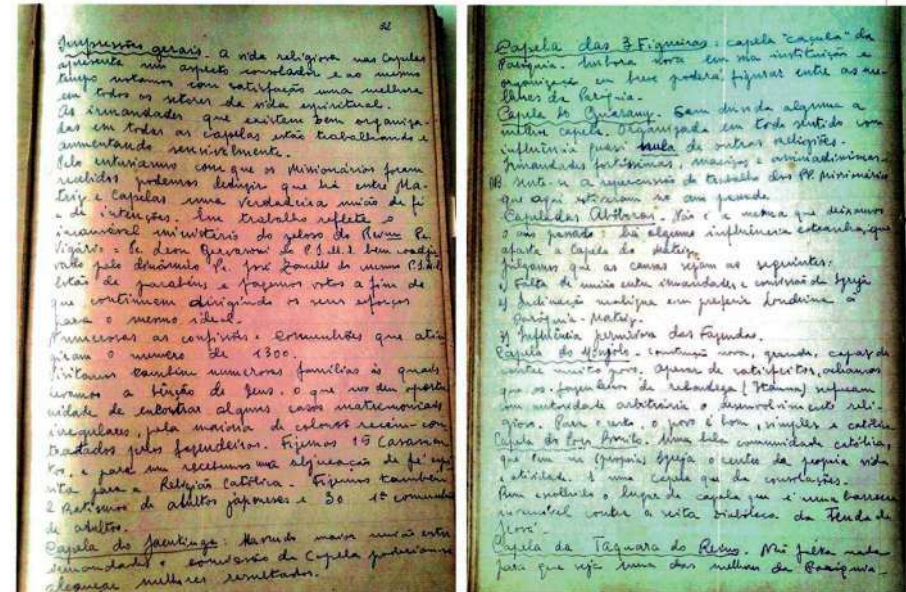 52
Impressões gerais. A vida religiosa nas Capelas
apresenta um aspecto consolador e ao mesmo
tempo notamos com satisfação uma melhora
em todos os setores da vida espiritual.
As irmandades que existem bem organiza-
das em todas as capelas estão trabalhando e
aumentando sensivelmente.
Pelo entusiasmo com que os Missionarios foram
recebidos podemos deduzir que há entre Ma-
triz e Capelas uma verdadeira união de fé
e de intenções. Este trabalho reflete o
incansável ministério do zeloso do Revmo Pe.
Vigário = Pe. Leon Gervasoni do P.I.M.E. bem coadju-
vado pelo dinâmico Pe. José Zanelli do mesmo P.I.M.E.
Estão de parabéns e fazemos votos a fim de
que continuem dirigindo os seus esforços
para o mesmo ideal.
Numerosas as confissões e Comunhões que atin-
giram o numero de 1300.
Visitamos também numerosas familias às quais
levamos a bênção de Deus, o que nos deu oportu-
nidade de encontrar alguns casos matrimoniais
irregulares, pela maioria de colonos recém-con-
tratados pelos fazendeiros. Fizemos 15 Casamen-
tos, e para um recebemos uma abjuração de fé
para a Religião Católica. Fizemos também
2 Batismos de adultos japoneses e 30 1ª comunhões
de adultos.
Capela do Jacutinga: Havendo maior união entre
irmandades e comissão da Capela poderiam-se
alcançar melhores resultados.
Capela das 3 Figueiras: capela "caçula" da
Paróquia. Embora nova em sua instituição e
organização em breve poderá figurar entre as me-
lhores da Paróquia.
Capela do Guarany. Sem duvida alguma a
melhor capela. Organizada em todo sentido com
influência quasi nula de outras religiões.
Irmandades fortissimas, maciças e
NB. Nota-se a repercussão do trabalho dos PP. Missionários
que aqui estiveram no ano passado.
Capela das Abóboras. Não é a mesma que deixamos
o ano passado: há alguma influência estranha, que
afasta a Capela da Matriz.
Julgamos que as causas sejam as seguintes:
1) Falta de união entre irmandades e comissão da Igreja
2) Inclinação maligna em preferir Londrina à
Paróquia - Matriz.
3) Influência perniciosa das Fazendas.
Capela do Monjolo. Construção nova, grande, capaz de
conter muito povo. Apesar de satisfeitos, achamos
que os fazendeiros da redondeza sufocam
com autoridade arbitrária o desenvolvimento reli-
gioso. Para o resto, o povo é bom, simples e católico
Capela do Poço Bonito. Uma bela comunidade católica,
que tem na (propria) Igreja o centro da propria vida
e atividade. É uma capela que dá consolações.
Bem escolhido o lugar da capela que é uma barreira
contra a seita diabólica da Tenda de
Jerssí.
Capela da Taquara do Reino. Não falta nada
para que seja uma das melhores da Paróquia.